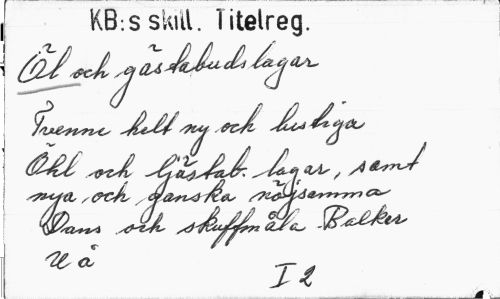 KB:s skill. Titelreg.
Öl och gästabudslagar
Tvenne helt ny och lustiga
Öhl och Gästab. lagar, samt
nya och ganska nöjsamma
Dans och skuffmåla Balker
U å
I 2